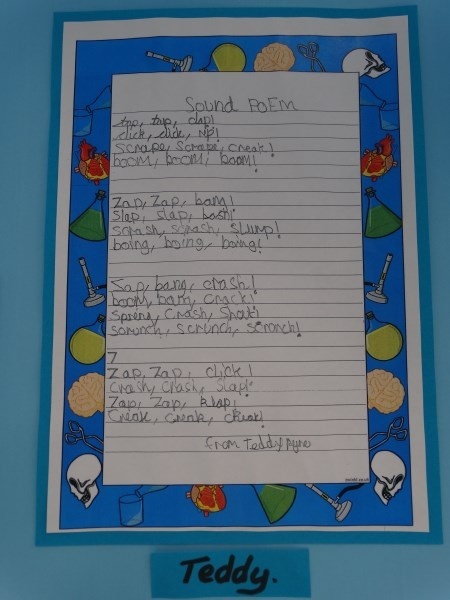 Sound PoEM
tap, tap, clap!
click, click, rip!
Scrape, Scrape, creak!
boom, boom, boom!
Zap, Zap, bang!
Slap, slap, bash!
squash, squash, slump!
boing, boing, boing!
Zap, bang, crash!
boom, bam, crack!
Spring, Crash, Splat!
scrunch, scrunch, scrunch!
7
Zap, Zap, click!
Crash, Crash, Slap!
Zap, Zap, klap!
Creak, creak, creak!
from Teddy
Teddy.